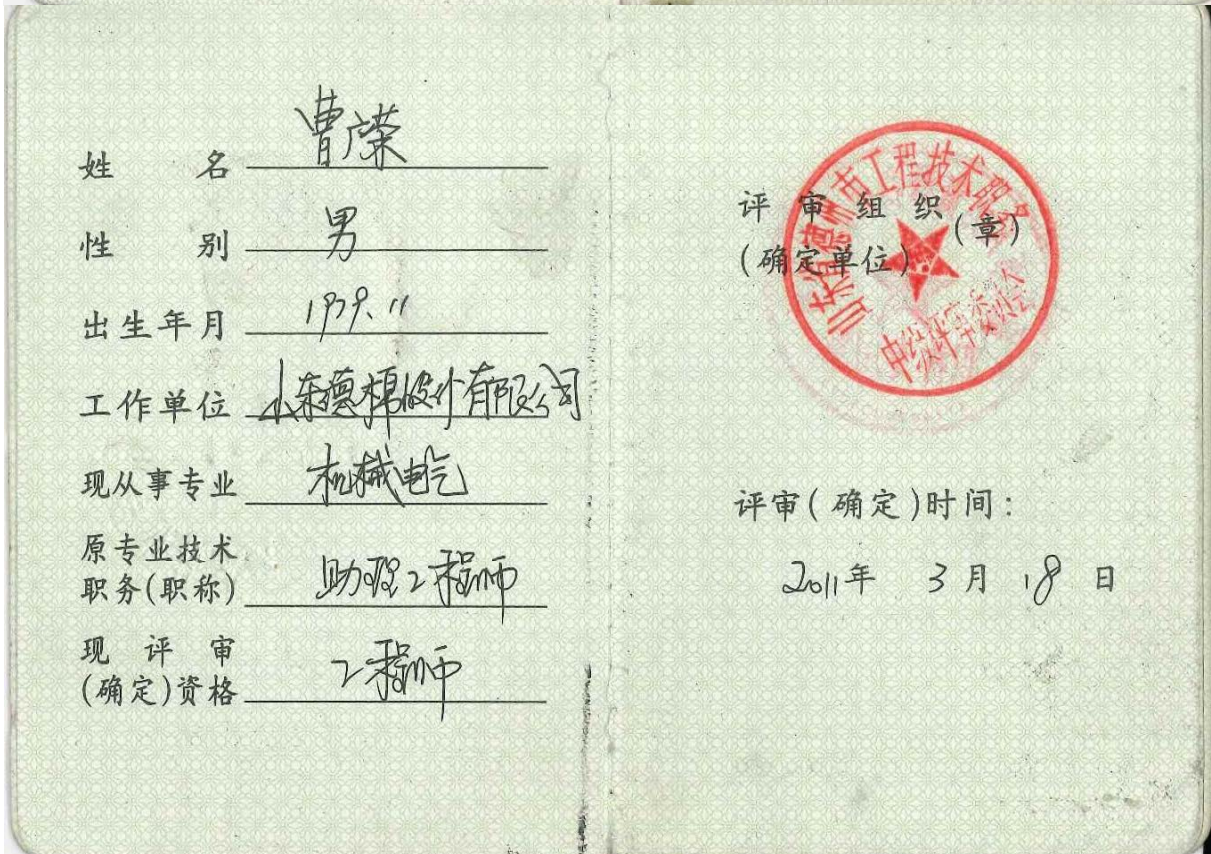 姓名 曹广荣
性别 男
出生年月 1979.11
工作单位 山东德棉股份有限公司
现从事专业 机械电气
原专业技术
职务(职称) 助理工程师
现评审
(确定)资格 工程师
山东省德州市工程技术职务
中级评审委员会
评审组织(章)
(确定单位)
评审(确定)时间:
2011年 3月 18日